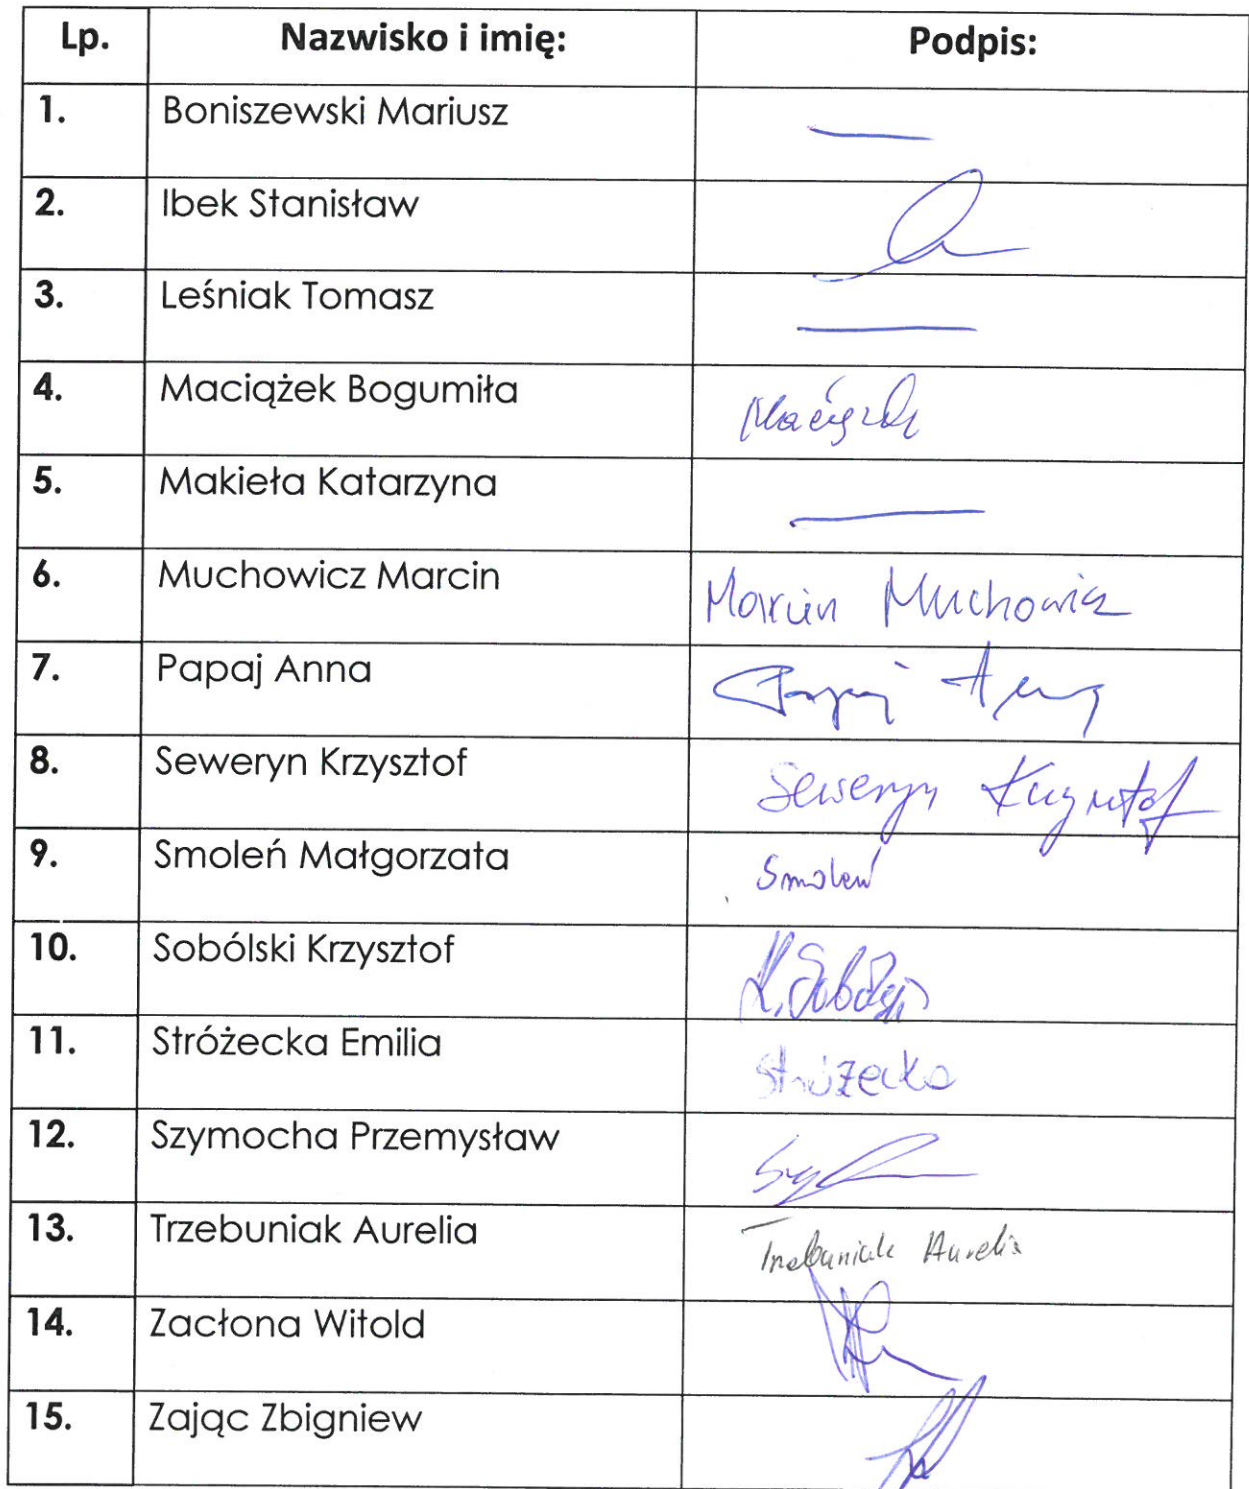 Lp. Nazwisko i imię: Podpis:
1. Boniszewski Mariusz —
2. Ibek Stanisław
3. Leśniak Tomasz —
4. Maciążek Bogumiła
5. Makieła Katarzyna —
6. Muchowicz Marcin Marcin Muchowicz
7. Papaj Anna Papaj Anna
8. Seweryn Krzysztof Seweryn Krzysztof
9. Smoleń Małgorzata Smoleń
10. Sobólski Krzysztof
11. Stróżecka Emilia Stróżecka
12. Szymocha Przemysław
13. Trzebuniak Aurelia Trzebuniak Aurelia
14. Zacłona Witold
15. Zając Zbigniew